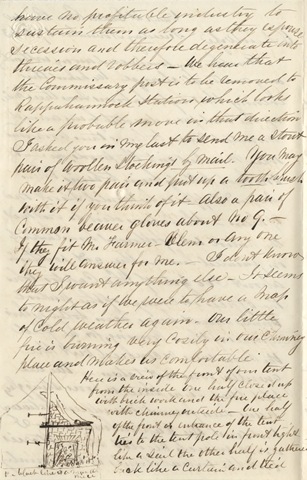 have no profitable industry to
sustain them as long as they espouse
Secession and therefore degenerate into
thieves and robbers – We hear that
the Commissary post is to be removed to
Rappahannock Station, which looks
like a probable move in that direction
I asked you in my last to send me a stout
pair of woollen stockings by mail. You may
make it two pair and put up a tooth brush
with it if you think of it also a pair of
Common beaver gloves about No 9. –
If they fit Mr Farmer – Clem or any one
they will answer for me. – I don't know
that I want anything else – It seems
to night as if we were to have a snap
of Cold weather again. Our little
fire is burning very cosily in our Chimney
place and makes us comfortable.
Here is a view of the front of our tent
from the inside one half closed up
with brick work and the fire place
with chimney outside – One half
of the front & entrance of the tent
ties to the tent pole in front tight
like a sail the other half is gathered
back like a curtain and tied